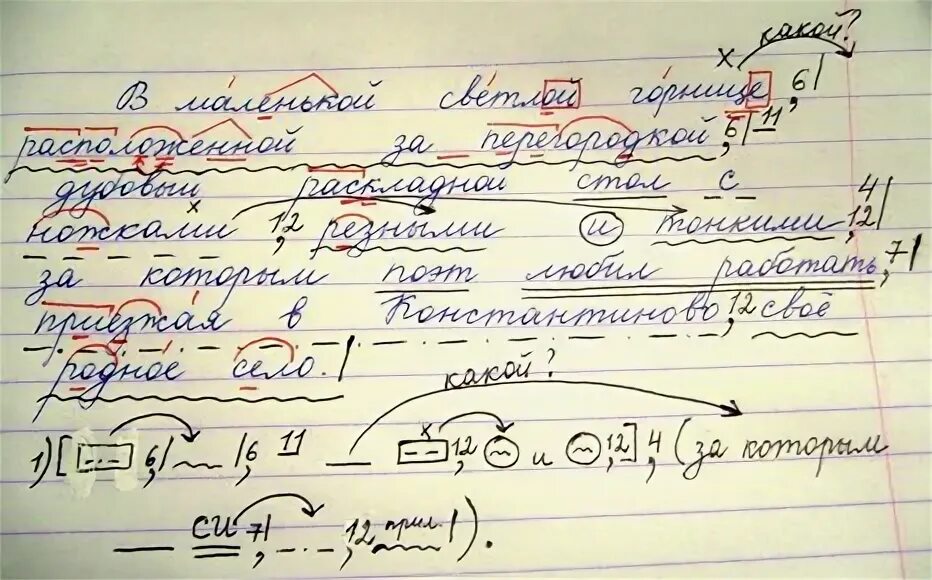 какой?
х
В маленькой светлой горнице, 6|
расположенной за перегородкой, 6| 11
дубовый раскладной стол с 4
ножками х, 12 резными и тонкими, 12|
за которым поэт любил работать, 7|
приезжая в Константиново, 12 своё
родное село. |
какой?
1) [ 6|, |6, 11 х 12, и 12,], 4 (за которым
СИ 7|, 12, прил. |).